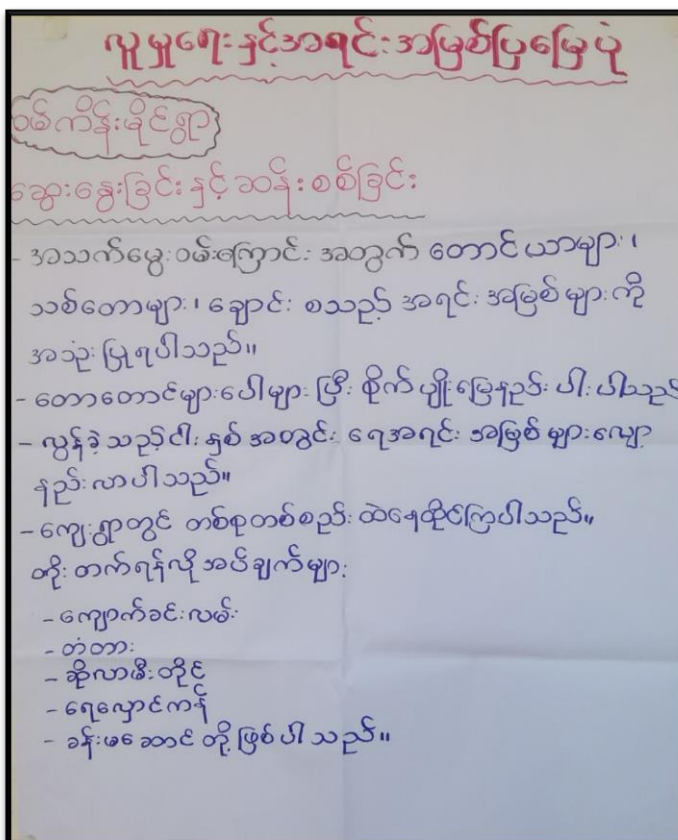 လူမှုရေးနှင့်အရင်းအမြစ်ပြမြေပုံ
ဝမ်ကိန်းမိုင်ရွာ
ဆွေးနွေးခြင်းနှင့်ဆန်းစစ်ခြင်း
- အသက်မွေးဝမ်းကြောင်း အတွက် တောင်ယာများ၊
သစ်တောများ၊ ချောင်း စသည့် အရင်းအမြစ်များကို
အသုံးပြုရပါသည်။
- တောတောင်များပေါများပြီး စိုက်ပျိုးမြေနည်းပါးပါသည်
- လွန်ခဲ့သည့်ငါးနှစ်အတွင်း ရေအရင်းအမြစ်များလျော့
နည်းလာပါသည်။
- ကျေးရွာတွင် တစ်စုတစ်စည်းထဲနေထိုင်ကြပါသည်။
တိုးတက်ရန်လိုအပ်ချက်များ
- ကျောက်ခင်းလမ်း
- တံတား
- ဆိုလာမီးတိုင်
- ရေလှောင်ကန်
- ခန်းမဆောင် တို့ဖြစ်ပါသည်။